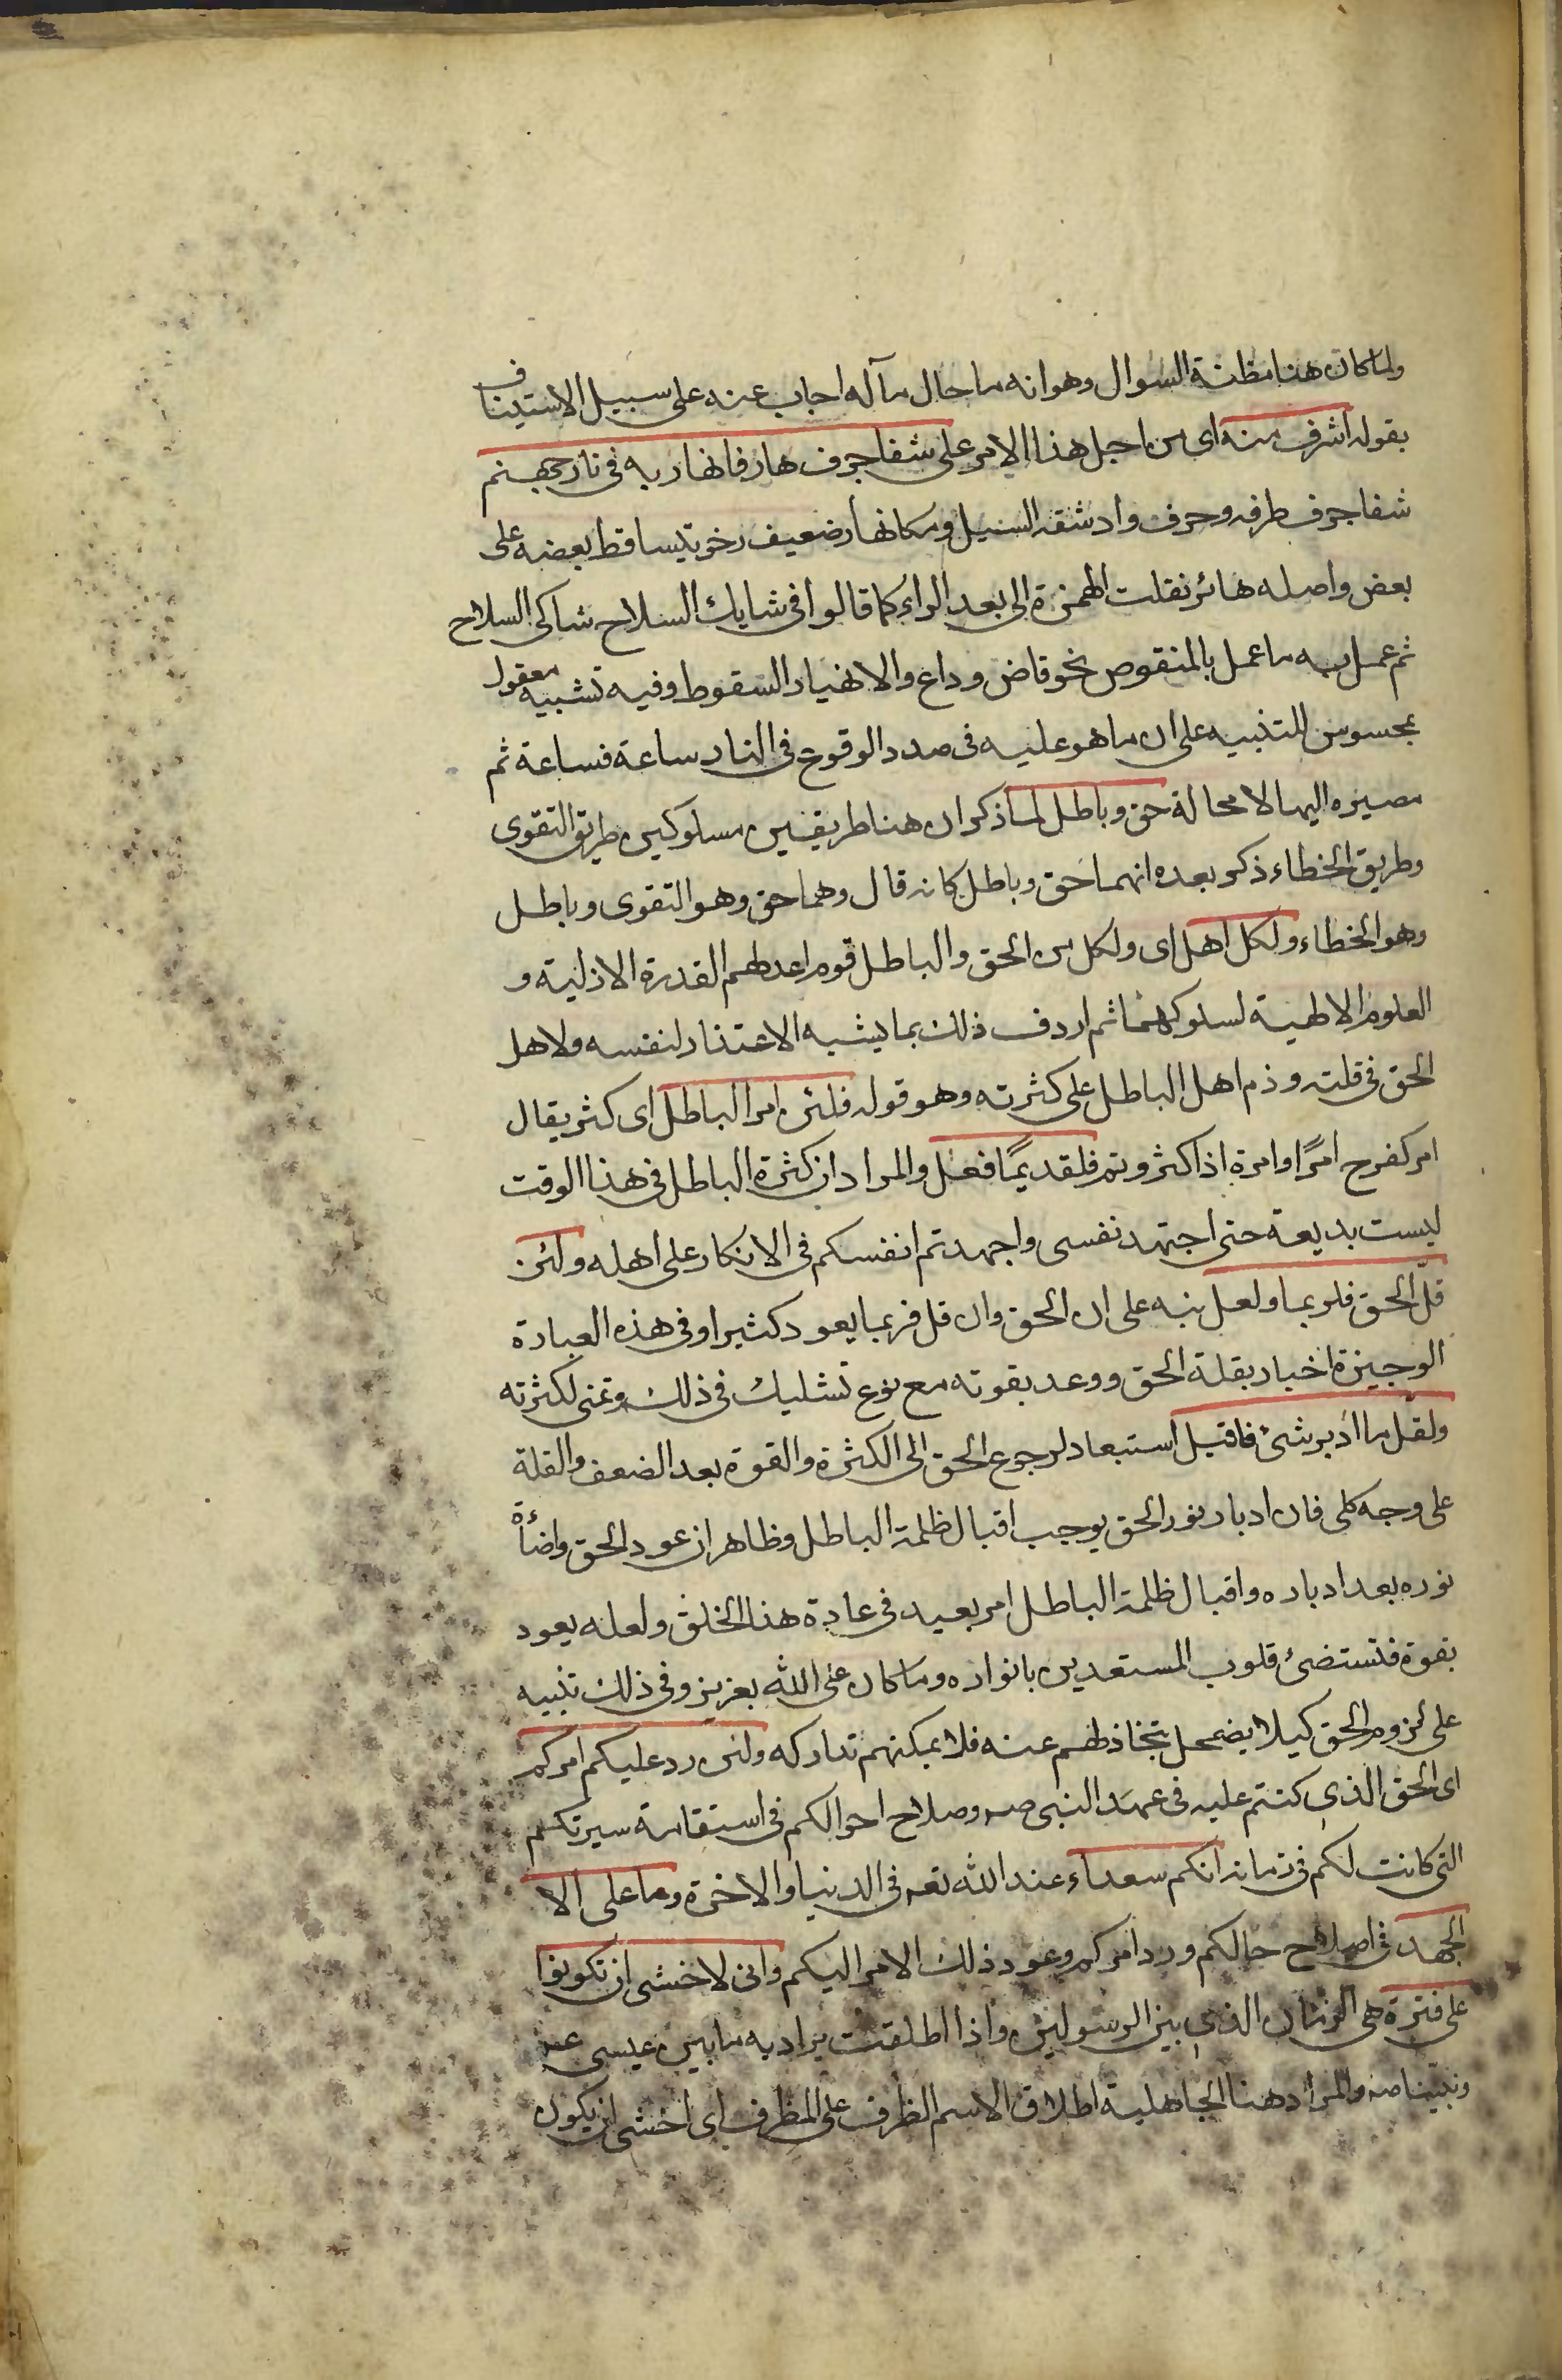 ولما كان هنا مظنة السوال وهو انه ما حال مآله اجاب عنه على سبيل الاستيناف
بقوله اشرف منه اى من اجل هذا الامر على شفا جرف هار فانهار به فى نار جهنم
شفا جرف طرفه وجرف واد شقه السيل ومكانهار ضعيف رخو يتساقط بعضه على
بعض واصله هائر نقلت الهمزة الى بعد الراء كما قالوا فى شايك السلاح شاكى السلاح
ثم عمل به ما عمل بالمنقوص نحو قاض وداع والانهيار السقوط وفيه تشبيه معقول
بمحسوس للتنبيه على ان ما هو عليه فى صدد الوقوع فى النار ساعة فساعة ثم
مصيره اليها لا محالة حق وباطل لما ذكر ان هنا طريقين مسلوكين طريق التقوى
وطريق الخطاء ذكر بعده انهما حق وباطل كانه قال وهما حق وهو التقوى وباطل
وهو الخطاء ولكل اهل اى ولكل من الحق والباطل قوم اعدلهم القدرة الازلية و
العلوم الالهية لسلوكهما ثم اردف ذلك بما يشبه الاعتذار لنفسه ولاهل
الحق فى قلته وذم اهل الباطل على كثرته وهو قوله فلئن امر الباطل اى كثر يقال
امر كفرح امرًا وامرة اذا كثر وتم فلقديمًا فعل والمراد ان كثرة الباطل فى هذا الوقت
ليست بديعة حتى اجتهد نفسى واجهدتم انفسكم فى الانكار على اهله ولئن
قلّ الحق فلربما ولعل نبه على ان الحق وان قل فربما يعود كثيرا وفى هذه العبارة
الوجيزة اخبار بقلة الحق ووعد بقوته مع نوع تشليك فى ذلك وتمنى لكثرته
ولقلّ ما ادبر شئ فاقبل استبعاد لرجوع الحق الى الكثرة والقوة بعد الضعف والقلة
على وجه كلى فان ادبار نور الحق يوجب اقبال ظلمة الباطل وظاهر ان عود الحق واضأة
نوره بعد ادباره واقبال ظلمة الباطل امر بعيد فى عادة هذا الخلق ولعله يعود
بقوة فتستضئ قلوب المستعدين بانواره وما كان على الله بعزيز وفى ذلك تنبيه
على لزوم الحق كيلا يضمحل بتخاذلهم عنه فلا يمكنهم تداركه ولئن رد عليكم امركم
اى الحق الذى كنتم عليه فى عهد النبى صه وصلاح احوالكم فى استقامة سيرتكم
التى كانت لكم فى زمانه انكم سعداء عند الله تعه فى الدنيا والاخرة وما على الا
الجهد فى اصلاح حالكم ورد امركم وعود ذلك الامر اليكم وانى لاخشى ان تكونوا
على فترة هى الزمان الذى بين الرسولين واذا اطلقت يراد به ما بين عيسى عم
ونبينا صه والمراد هنا الجاهلية اطلاق الاسم الظرف على المظرف اى اخشى ان يكون